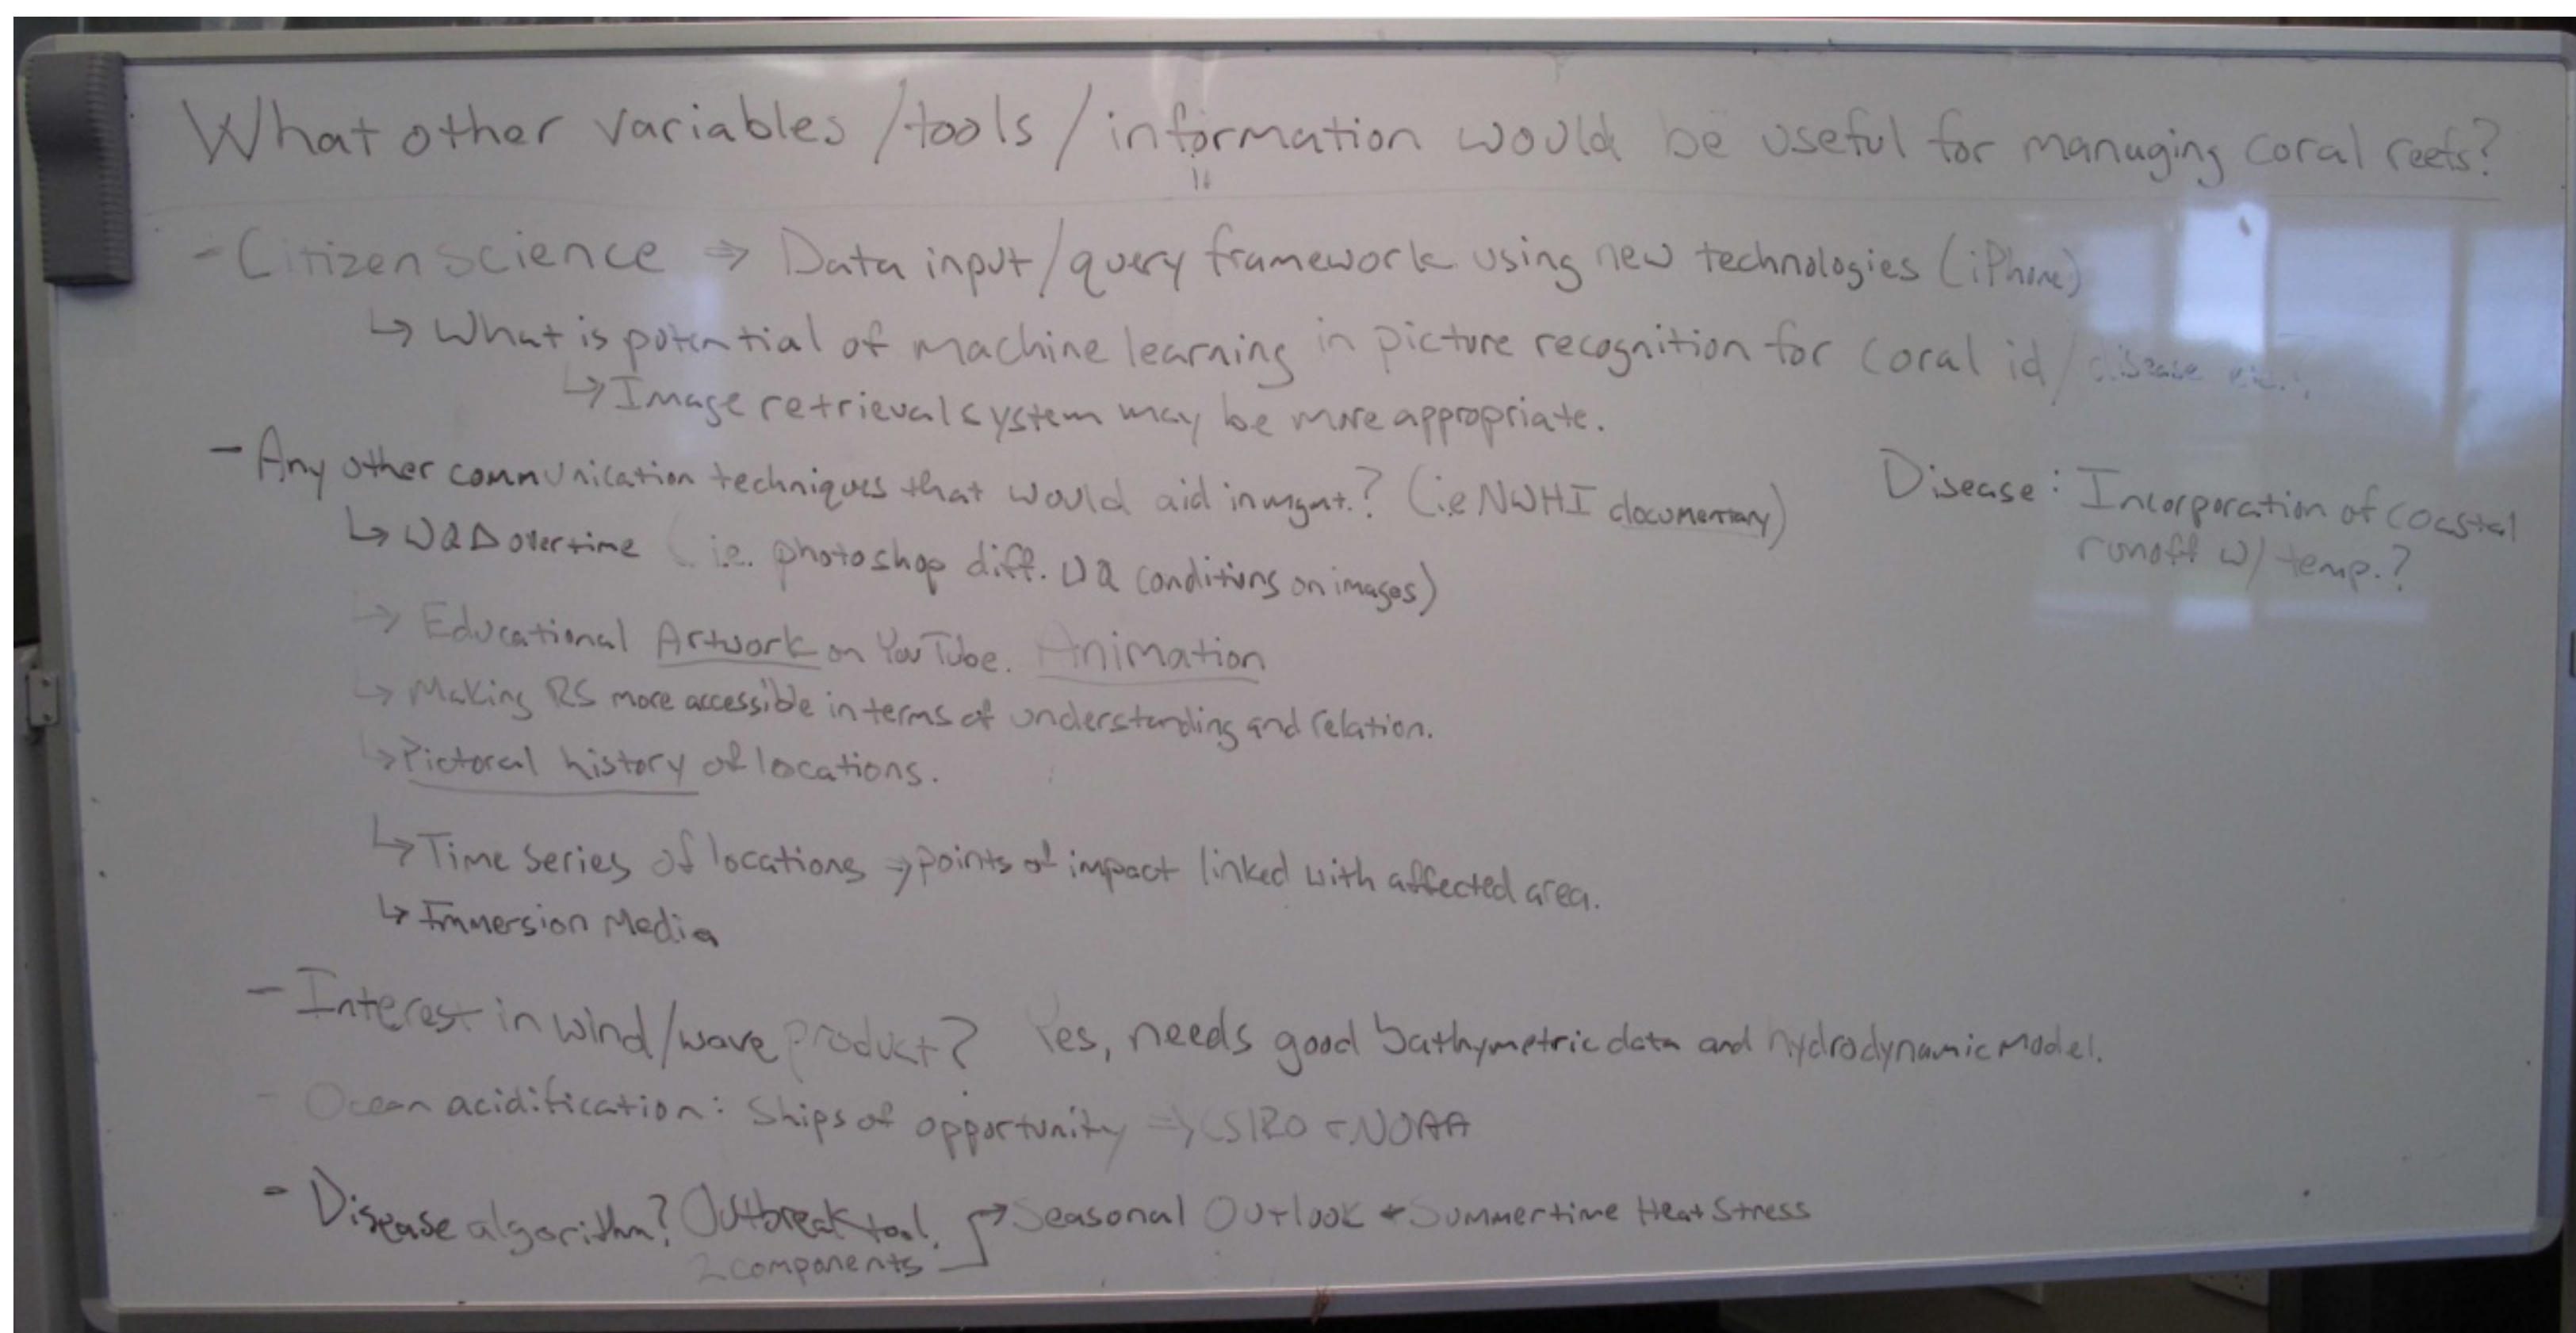 What other variables /tools / information would be useful for managing coral reefs?
- Citizen science ⇒ Data input/query framework using new technologies (iPhone)
↳ What is potential of machine learning in picture recognition for coral id/disease etc.?
↳ Image retrieval system may be more appropriate.
- Any other communication techniques that would aid in mgmt.? (i.e NWHI documentary)
↳ WQ Δ over time (i.e. photoshop diff. WQ conditions on images)
↳ Educational Artwork on YouTube. Animation
↳ Making RS more accessible in terms of understanding and relation.
↳ Pictoral history of locations.
↳ Time series of locations → points of impact linked with affected area.
↳ Immersion Media
Disease: Incorporation of coastal
runoff w/ temp.?
- Interest in wind/wave product? Yes, needs good bathymetric data and hydrodynamic model.
- Ocean acidification: Ships of opportunity ⇒ CSIRO + NOAA
- Disease algorithm? Outbreak tool. → Seasonal Outlook + Summertime Heat Stress
2 components